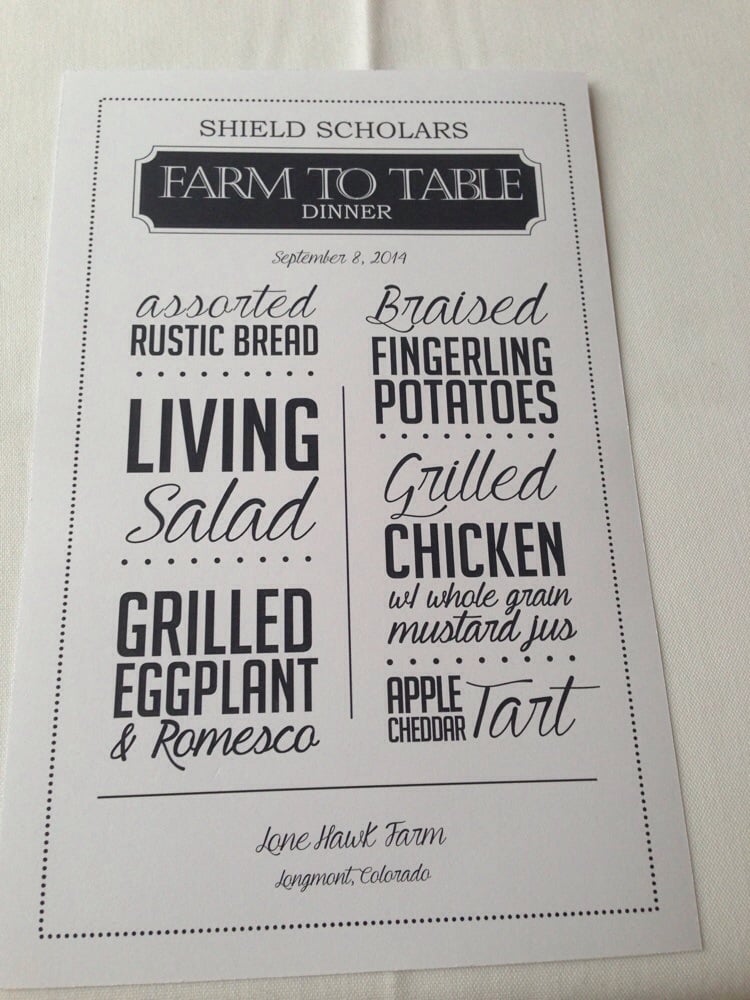 SHIELD SCHOLARS
FARM TO TABLE
DINNER
September 8, 2014
assorted
RUSTIC BREAD
LIVING
Salad
GRILLED
EGGPLANT
& Romesco
Braised
FINGERLING
POTATOES
Grilled
CHICKEN
w/ whole grain
mustard jus
APPLE
CHEDDAR Tart
Lone Hawk Farm
Longmont, Colorado